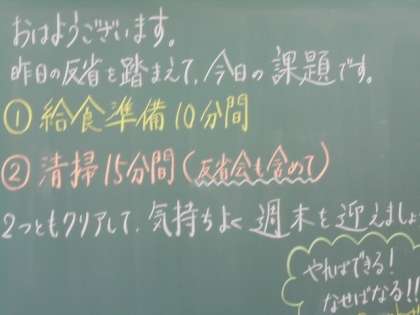 おはようございます。
昨日の反省を踏まえて、今日の課題です。
① 給食準備10分間
② 清掃15分間(反省会も含めて)
2つともクリアして、気持ちよく週末を迎えましょ
やればできる!
なせばなる!!